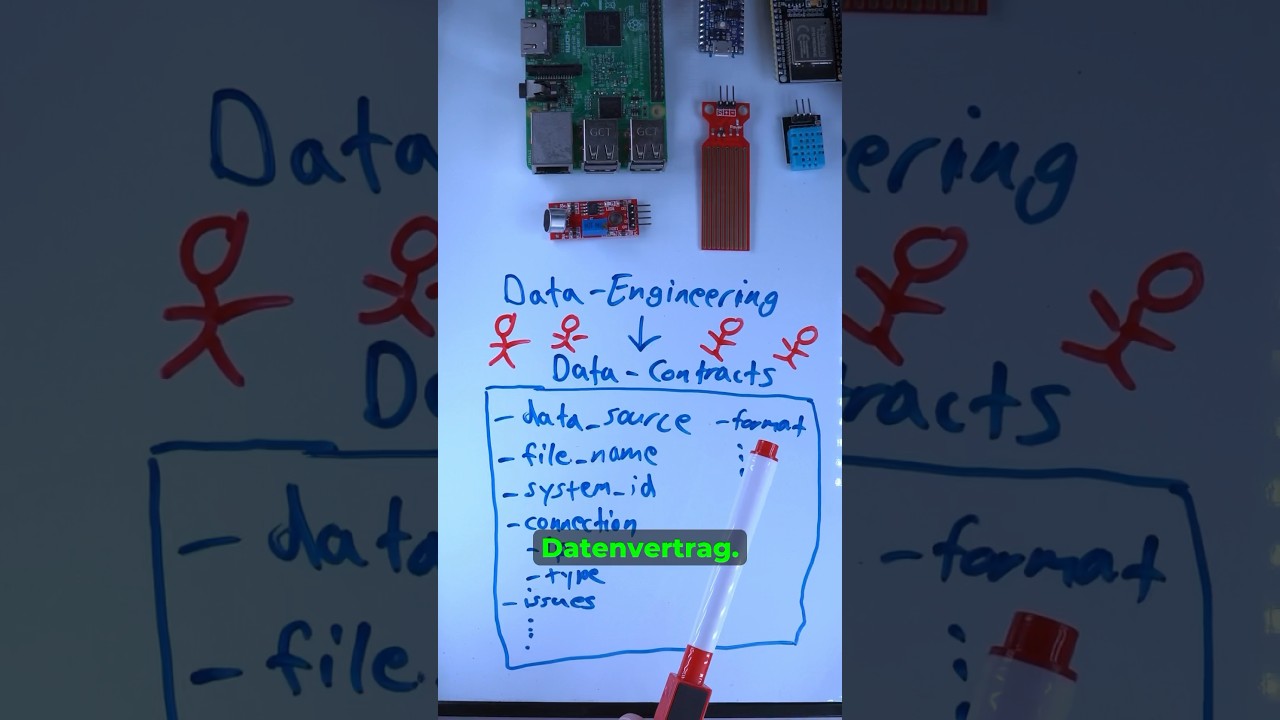 GCT GCT
Data-Engineering
Data-Contracts
- data_source - format
- file_name
- system_id
- connection
Datenvertrag.
- type
- issues